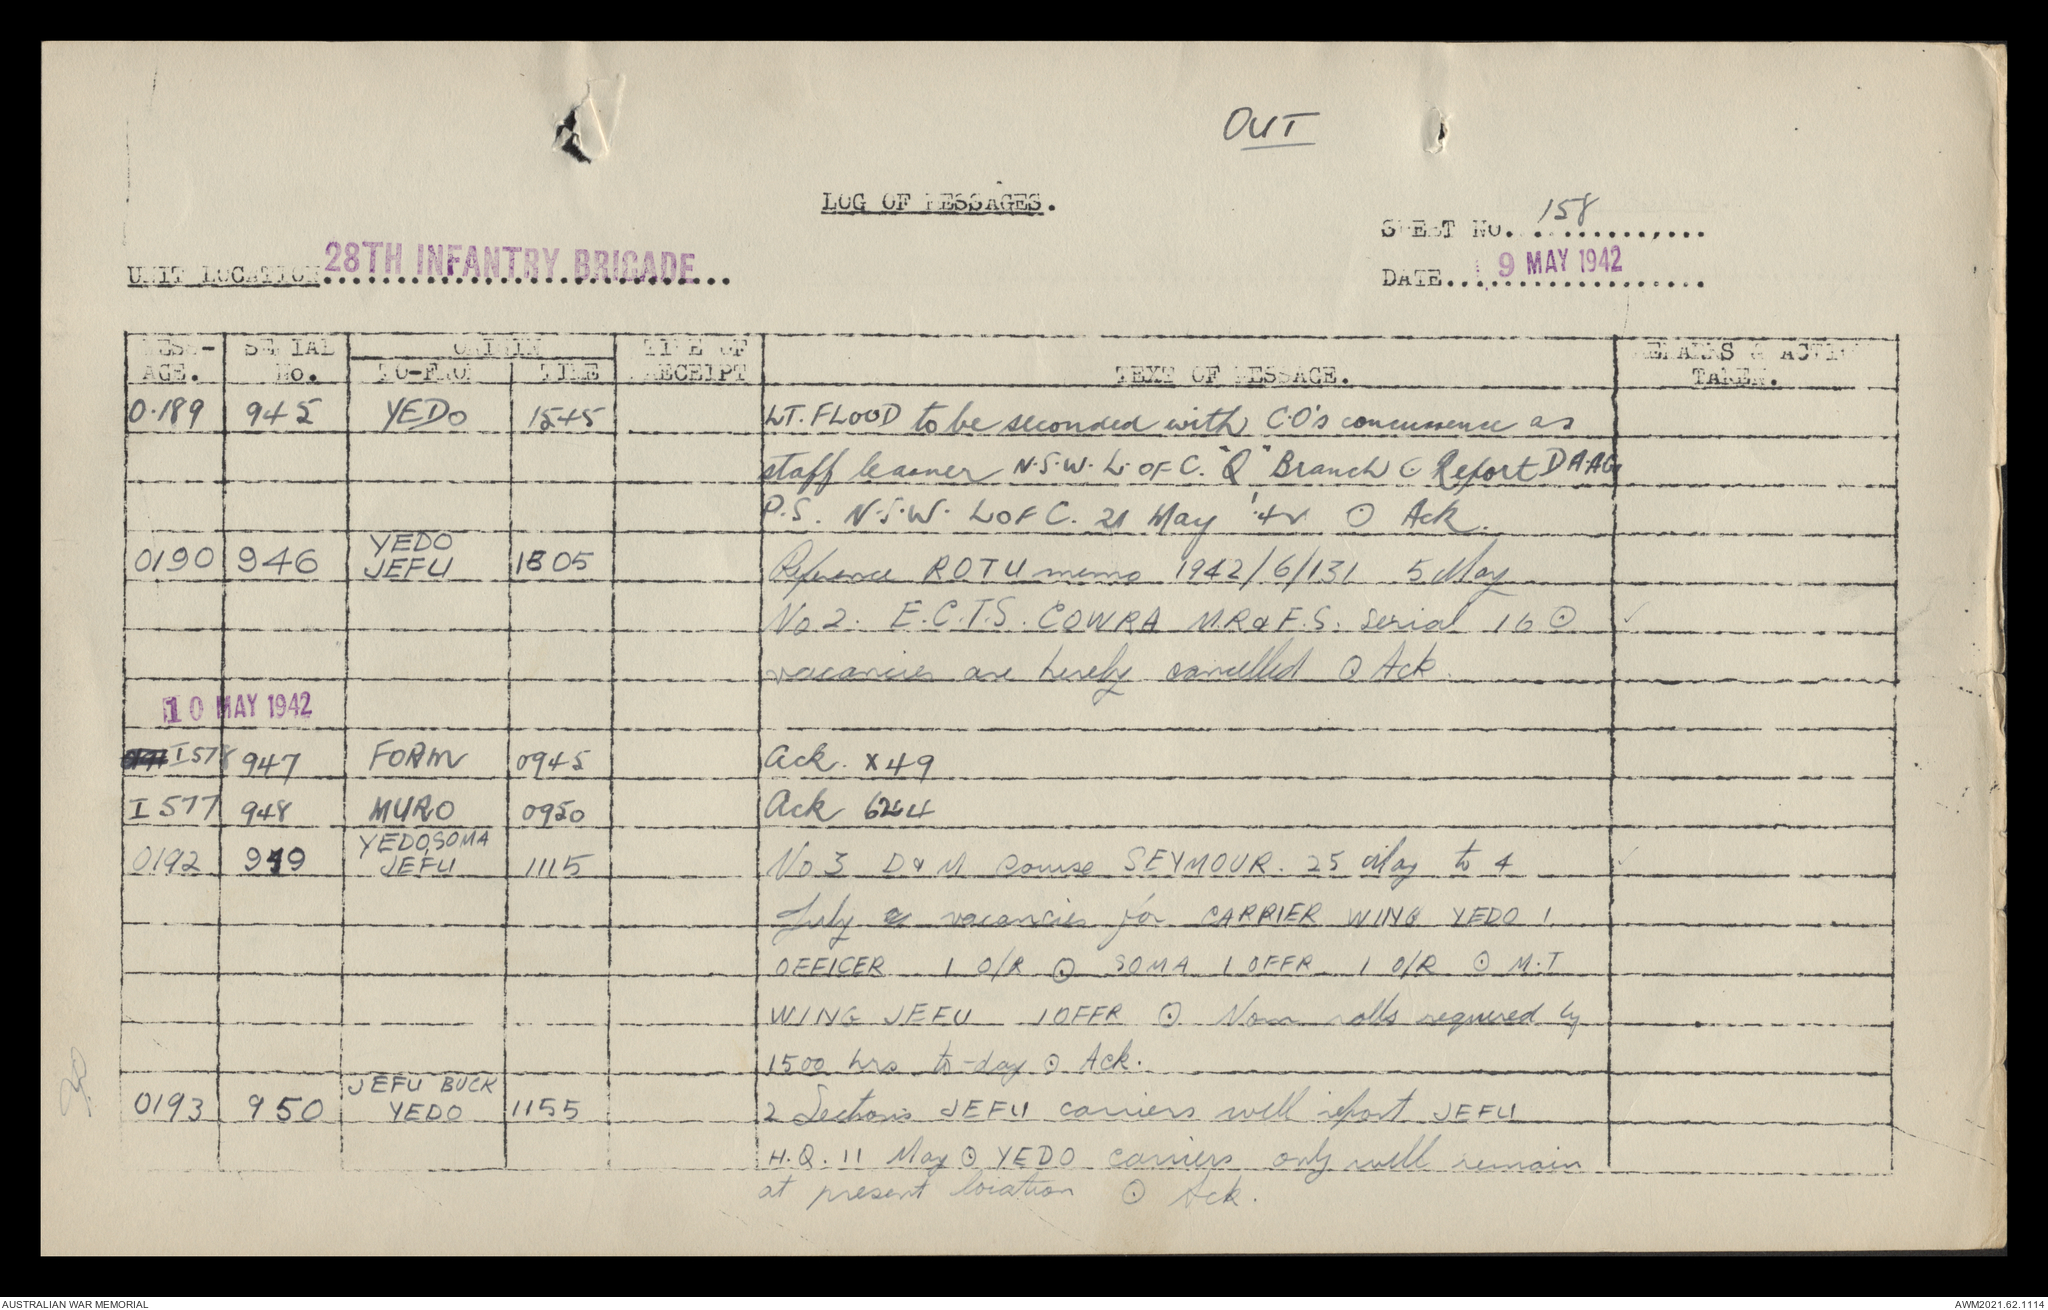 OUT
LOG OF MESSAGES.
SHEET No. 158
UNIT LOCATION 28TH INFANTRY BRIGADE
DATE 9 MAY 1942
MESS- SERIAL ORIGIN TIME OF REMARKS & ACTION
AGE. No. TO-FROM TIME RECEIPT TEXT OF MESSAGE. TAKEN.
O.189 945 YEDO 1545 LT. FLOOD to be seconded with C.O's concurrence as
staff learner N.S.W. L. OF C. "Q" Branch ⊙ Report D.A.A.G
P.S. N.S.W. L OF C. 21 May '42 ⊙ Ack.
YEDO
0190 946 JEFU 1805 Reference ROTU memo 1942/6/131 5 May
No 2. E.C.T.S. COWRA M.R & F.S. Serial 16 ⊙ ✓
vacancies are hereby cancelled ⊙ Ack.
10 MAY 1942
I 578 947 FORM 0945 Ack. X49
I 577 948 MURO 0950 Ack 6244
YEDO, SOMA
0192 949 JEFU 1115 No 3 D & M course SEYMOUR. 25 May to 4 ✓
July vacancies for CARRIER WING YEDO 1
OFFICER 1 O/R ⊙ SOMA 1 OFFR 1 O/R ⊙ M.T
WING JEFU 1 OFFR ⊙ Nom rolls required by
1500 hrs to-day ⊙ Ack.
JEFU BUCK
0193 950 YEDO 1155 2 Sections JEFU carriers will report JEFU
H.Q. 11 May ⊙ YEDO carriers only will remain
at present location ⊙ Ack.
AUSTRALIAN WAR MEMORIAL
AWM2021.62.1114